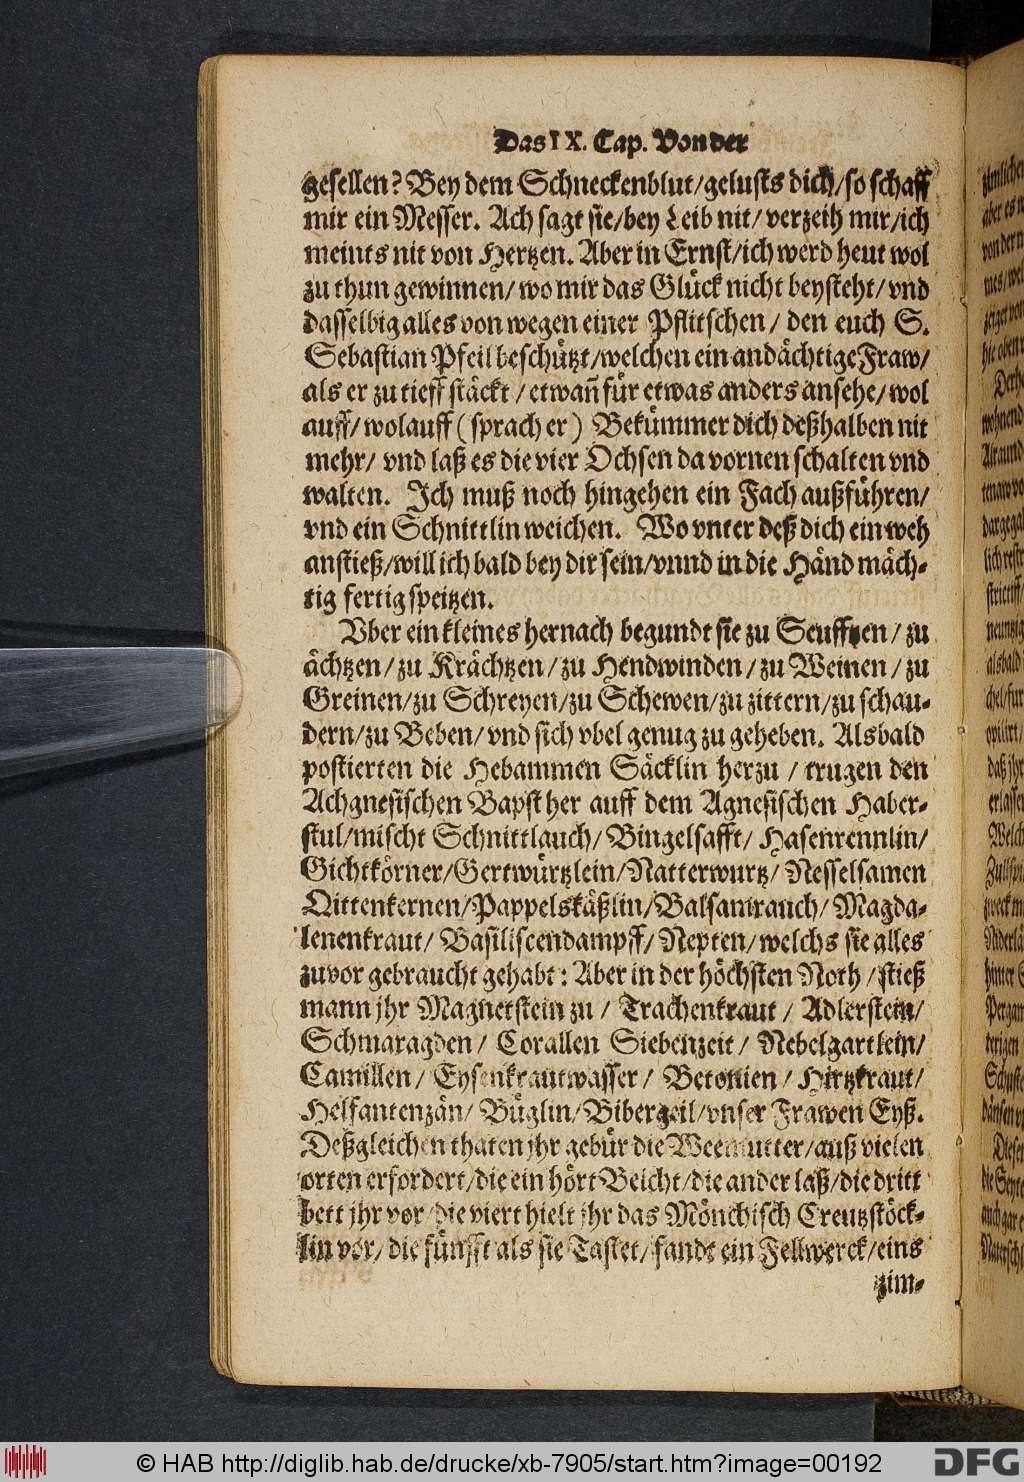 Das IX. Cap. Von der
gesellen? Bey dem Schneckenblut/gelusts dich/so schaff
mir ein Messer. Ach sagt sie/bey Leib nit/ verzeih mir/ich
meints nit von Hertzen. Aber in Ernst/ich werd heut wol
zu thun gewinnen/ wo mir das Glück nicht beysteht/ vnd
dasselbig alles von wegen einer Pflitschen/ den euch S.
Sebastian Pfeil beschützt/welchen ein andächtige Fraw/
als er zu tieff stäckt / etwañ für etwas anders ansehe/ wol
auff/ wolauff (sprach er) Bekümmer dich deßhalben nit
mehr/ vnd laß es die vier Ochsen da vornen schalten vnd
walten. Ich muß noch hingehen ein Fach außführen/
vnd ein Schnittlin weichen. Wo vnter deß dich ein weh
anstieß/will ich bald bey dir sein/vnnd in die Händ mäch-
tig fertig speitzen.
Vber ein kleines hernach begundt sie zu Seufftzen / zu
ächtzen/ zu Krächtzen/ zu Hendwinden/ zu Weinen / zu
Greinen/zu Schreyen/zu Schewen/zu zittern/zu schau-
dern/zu Beben/ vnd sich vbel genug zu geheben. Alsbald
postierten die Hebammen Säcklin herzu / trugen den
Achgnesischen Bapst her auff dem Agnesischen Haber-
stul/mischt Schnittlauch/ Bingelsafft/ Hasenrennlin/
Gichtkörner/Gertwürtzlein/Natterwurtz/ Nesselsamen
Qittenkernen/Pappelskäßlin/Balsamrauch/ Magda-
lenenkraut/ Basiliscendampff/ Nepten/welchs sie alles
zuvor gebraucht gehabt: Aber in der höchsten Noth / stieß
mann jhr Magnetstein zu / Trachenkraut / Adlerstein/
Schmaragden/ Corallen Siebenzeit/ Nebelgartlein/
Camillen/ Eysenkrautwasser/ Betonien/ Hirtzkraut/
Helfantenzän/ Büglin/Bibergeil/vnser Frawen Eyß.
Deßgleichen thaten jhr gebür die Weemutter/auß vielen
orten erfordert/die ein hört Beicht/die ander laß/die dritt
bett jhr vor/die viert hielt jhr das Mönchisch Creutzstöck-
lin vor/ die fünfft als sie Tastet/ fandt ein Fellwerck/eins
zim-
© HAB http://diglib.hab.de/drucke/xb-7905/start.htm?image=00192
DFG